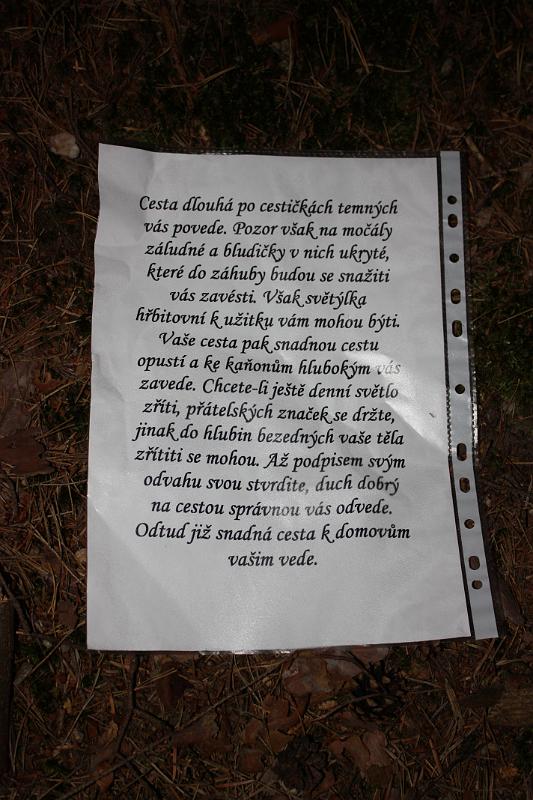 Cesta dlouhá po cestičkách temných
vás povede. Pozor však na močály
záludné a bludičky v nich ukryté,
které do záhuby budou se snažiti
vás zavésti. Však světýlka
hřbitovní k užitku vám mohou býti.
Vaše cesta pak snadnou cestu
opustí a ke kaňonům hlubokým vás
zavede. Chcete-li ještě denní světlo
zříti, přátelských značek se držte,
jinak do hlubin bezedných vaše těla
zřítiti se mohou. Až podpisem svým
odvahu svou stvrdíte, duch dobrý
na cestou správnou vás odvede.
Odtud již snadná cesta k domovům
vašim vede.